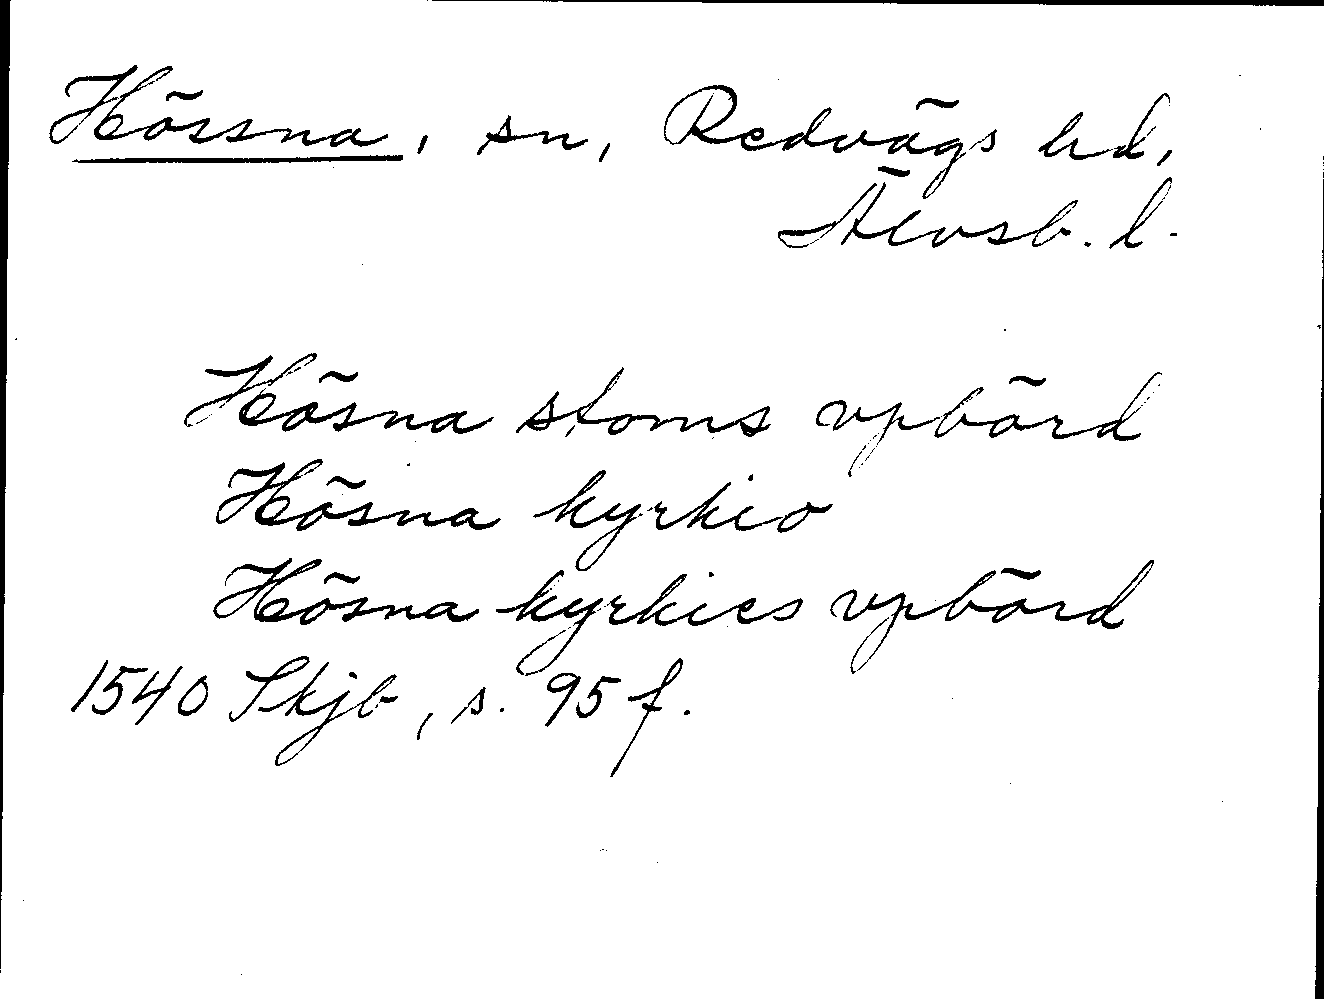 Hössna, sn, Redvägs hd,
Älvsb. l.
Hösna stoms vpbörd
Hösna kyrkio
Hösna kyrkies vpbörd
1540 Skjb, s. 95 f.